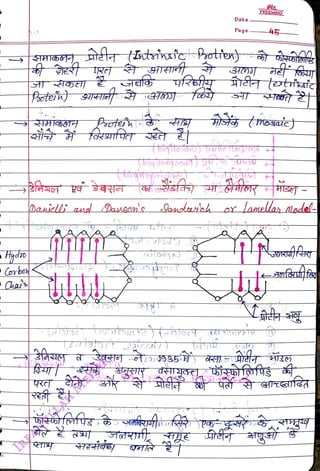 Date
Page 45
→ समाकलन प्रोटीन (Intrinsic Protien) को फॉस्फोलिपिड
की दोहरी परत से आसानी से अलग नहीं किया
जा सकता है जबकि परिधीय प्रोटीन (extrinsic
Protein) आसानी से अलग किये जा सकते है।
→ समाकलन Protein के साथ मोजेक (mosaic)
साँचे में विस्थापित रहते है।
→ डेनियल एवं डेवसन का सैंडविच या लैमीलर मॉडल-
Danielli and Dawson's Sandwich or lamellar model-
Hydro
Carbon
Chain
प्रोटीन अणु
→ डेनियल व डेवसन ने 1935 में वसा-प्रोटीन मॉडल
दिया। इसके अनुसार वसायुक्त फॉस्फोलिपिड की
परत दोनों ओर से प्रोटीन की पर्तों से आच्छादित
रहती है।
→ फॉस्फोलिपिड के जलरागी सिरे एक-दूसरे के सम्मुख
होते है तथा जलरागी समूह प्रोटीन अणुओं के
साथ सहसंबंध बनाते है।